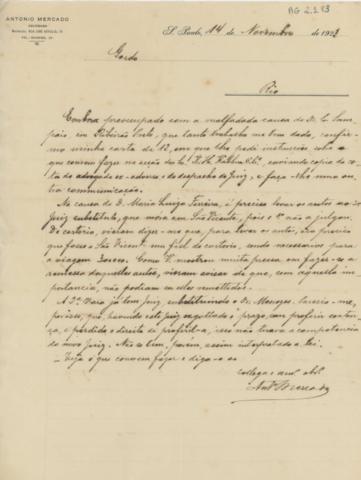 ANTONIO MERCADO
ADVOGADO
AG 2.2.93
S. Paulo, 14 de Novembro de 1923
Gordo
Rio
Embora preoccupado com a malfadada causa de D. L. Sam
paio em Ribeirão Preto, que tanto trabalho me tem dado, confir
mo minha carta de 12, em que lhe pedi instrucções sobre o
que convem fazer na acção de enviando copia da
ta do advogado e do despacho do Juiz, e faço-lhe uma ou
tra communicação.
Na causa de D. Maria Luiza Ferreira, é preciso levar os autos ao
Juiz substituto, que mora em São Vicente, pois o 1º não a julgou.
Do cartorio, vieram dizer-me que, para levar os autos, era preciso
que fosse a São Vicente um fiel do cartorio, sendo necessarios para
a viagem Como V. mostrou muita pressa em fazer-se a
remessa daquelles autos, vieram avisar de que, sem aquella im
portancia, não podiam ser elles remettidos.
A 2ª Vara já tem Juiz substituindo o Dr. Menezes. Parece-me,
porém, que, havendo este Juiz esgottado o prazo, sem proferir senten
ça, e perdido o direito de proferil-a, isso não traria a competencia
do novo Juiz. Não se tem, porém, assim interpretado a lei.
Veja o que convem fazer e diga-o ao
collega e amº. obrº.
Antº Mercado